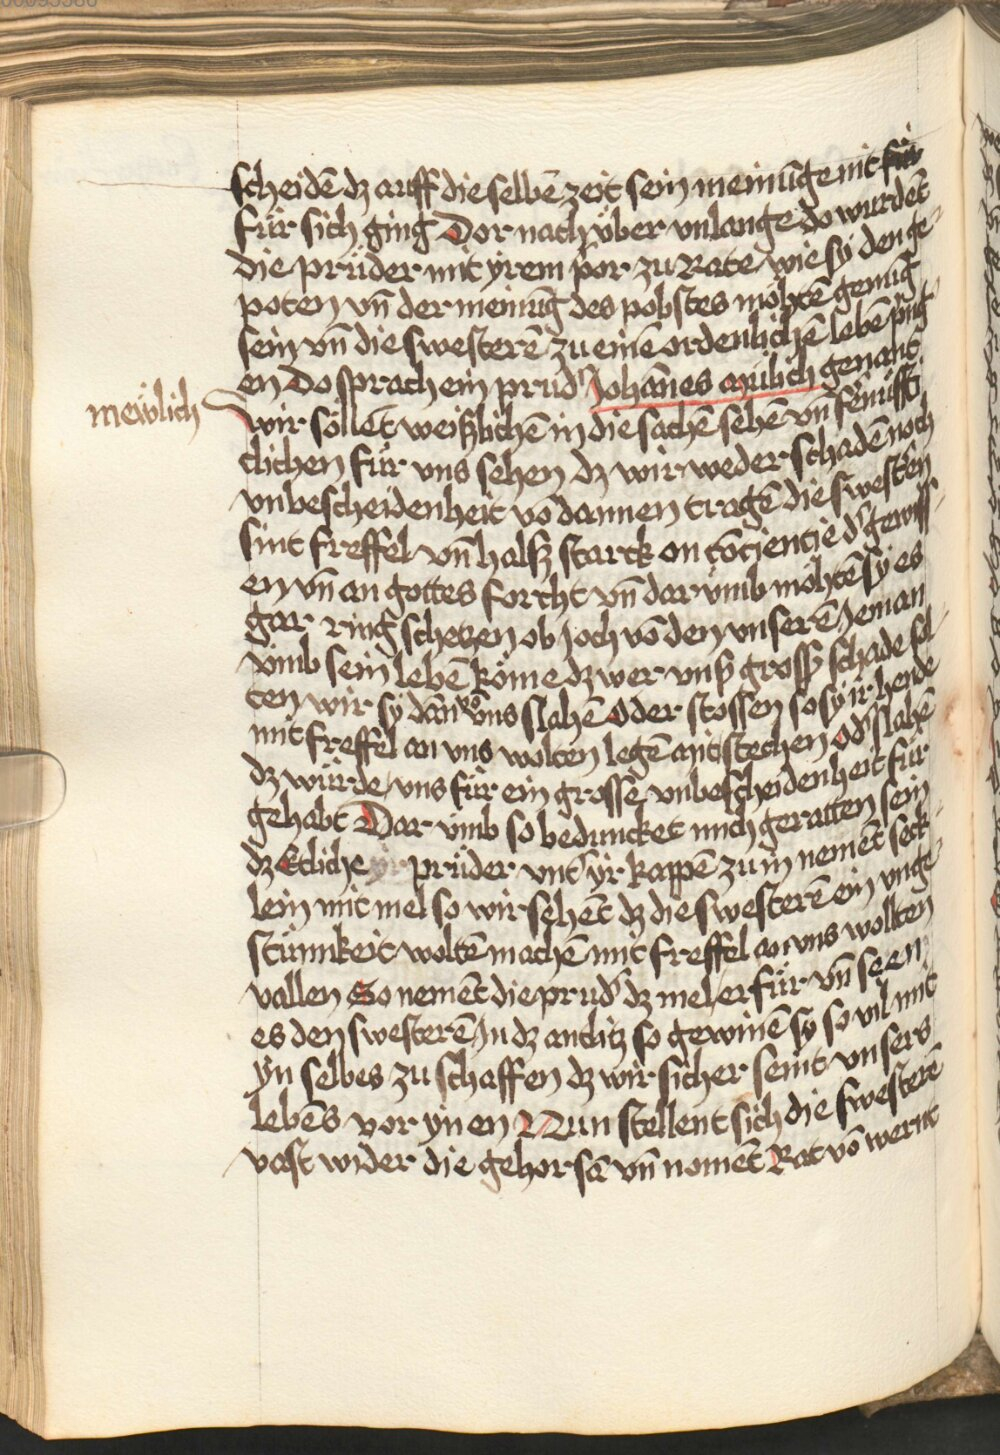 scheidē dz auff die selbē zeit sein meinūge nit für
für sich ging Dor nach über vnlange do wurdēt
die prüder mit yrem por zu Rate wie sÿ den ge-
poten vn̄ der meinūg des pobstes möhtē genūg
sein vn̄ die swesterē zu einē ordenlichē lebē pīg
en Do sprach ein prudʼ Johānes mülich genant
mewlich
wir söllēt weißlichē in die sachē sehē vn̄ fernüfft
clichen für vns sehen dz wir weder schadē noch
vnbescheidenheit vō dannen tragē die swestʼen
sint freffel vn̄ halß starck on cōcientie dʼ gewiss-
en vn̄ an gottes forcht vn̄ dar vmb möhtē sÿ es
gar ring schetzen ob joch vō den vnserē Jeman
vmb sein lebē köme dz wer vnß groß schade sol-
ten wir sÿ dān vō vns slahē Oder stossen so sÿ ir hende
mit freffel an vns wolten legē mit stechen odʼ slahē
dz würde vns für ein grosse vnbescheidenheit für
gehabt Dar vmb so beduncket mich geratten sein
dz Etliche prüder vntʼ yr kappē zu in nemēt seck-
lein mit mel so wir sehēt dz die swesterē ein vnge-
stümkeit woltē machē mit freffel an vns woltten
vallen So nemēt die prudʼ dz mel erfür vn̄ seen
es den swesterē in dz antlitz so gewinē sÿ so vil mit
yn selbes zu schaffen dz wir sicher seint vnsers
lebēs vor yn en Nun stellent sich die swesterē
vast wider die gehorsā vn̄ nomēt Rat vō wernt